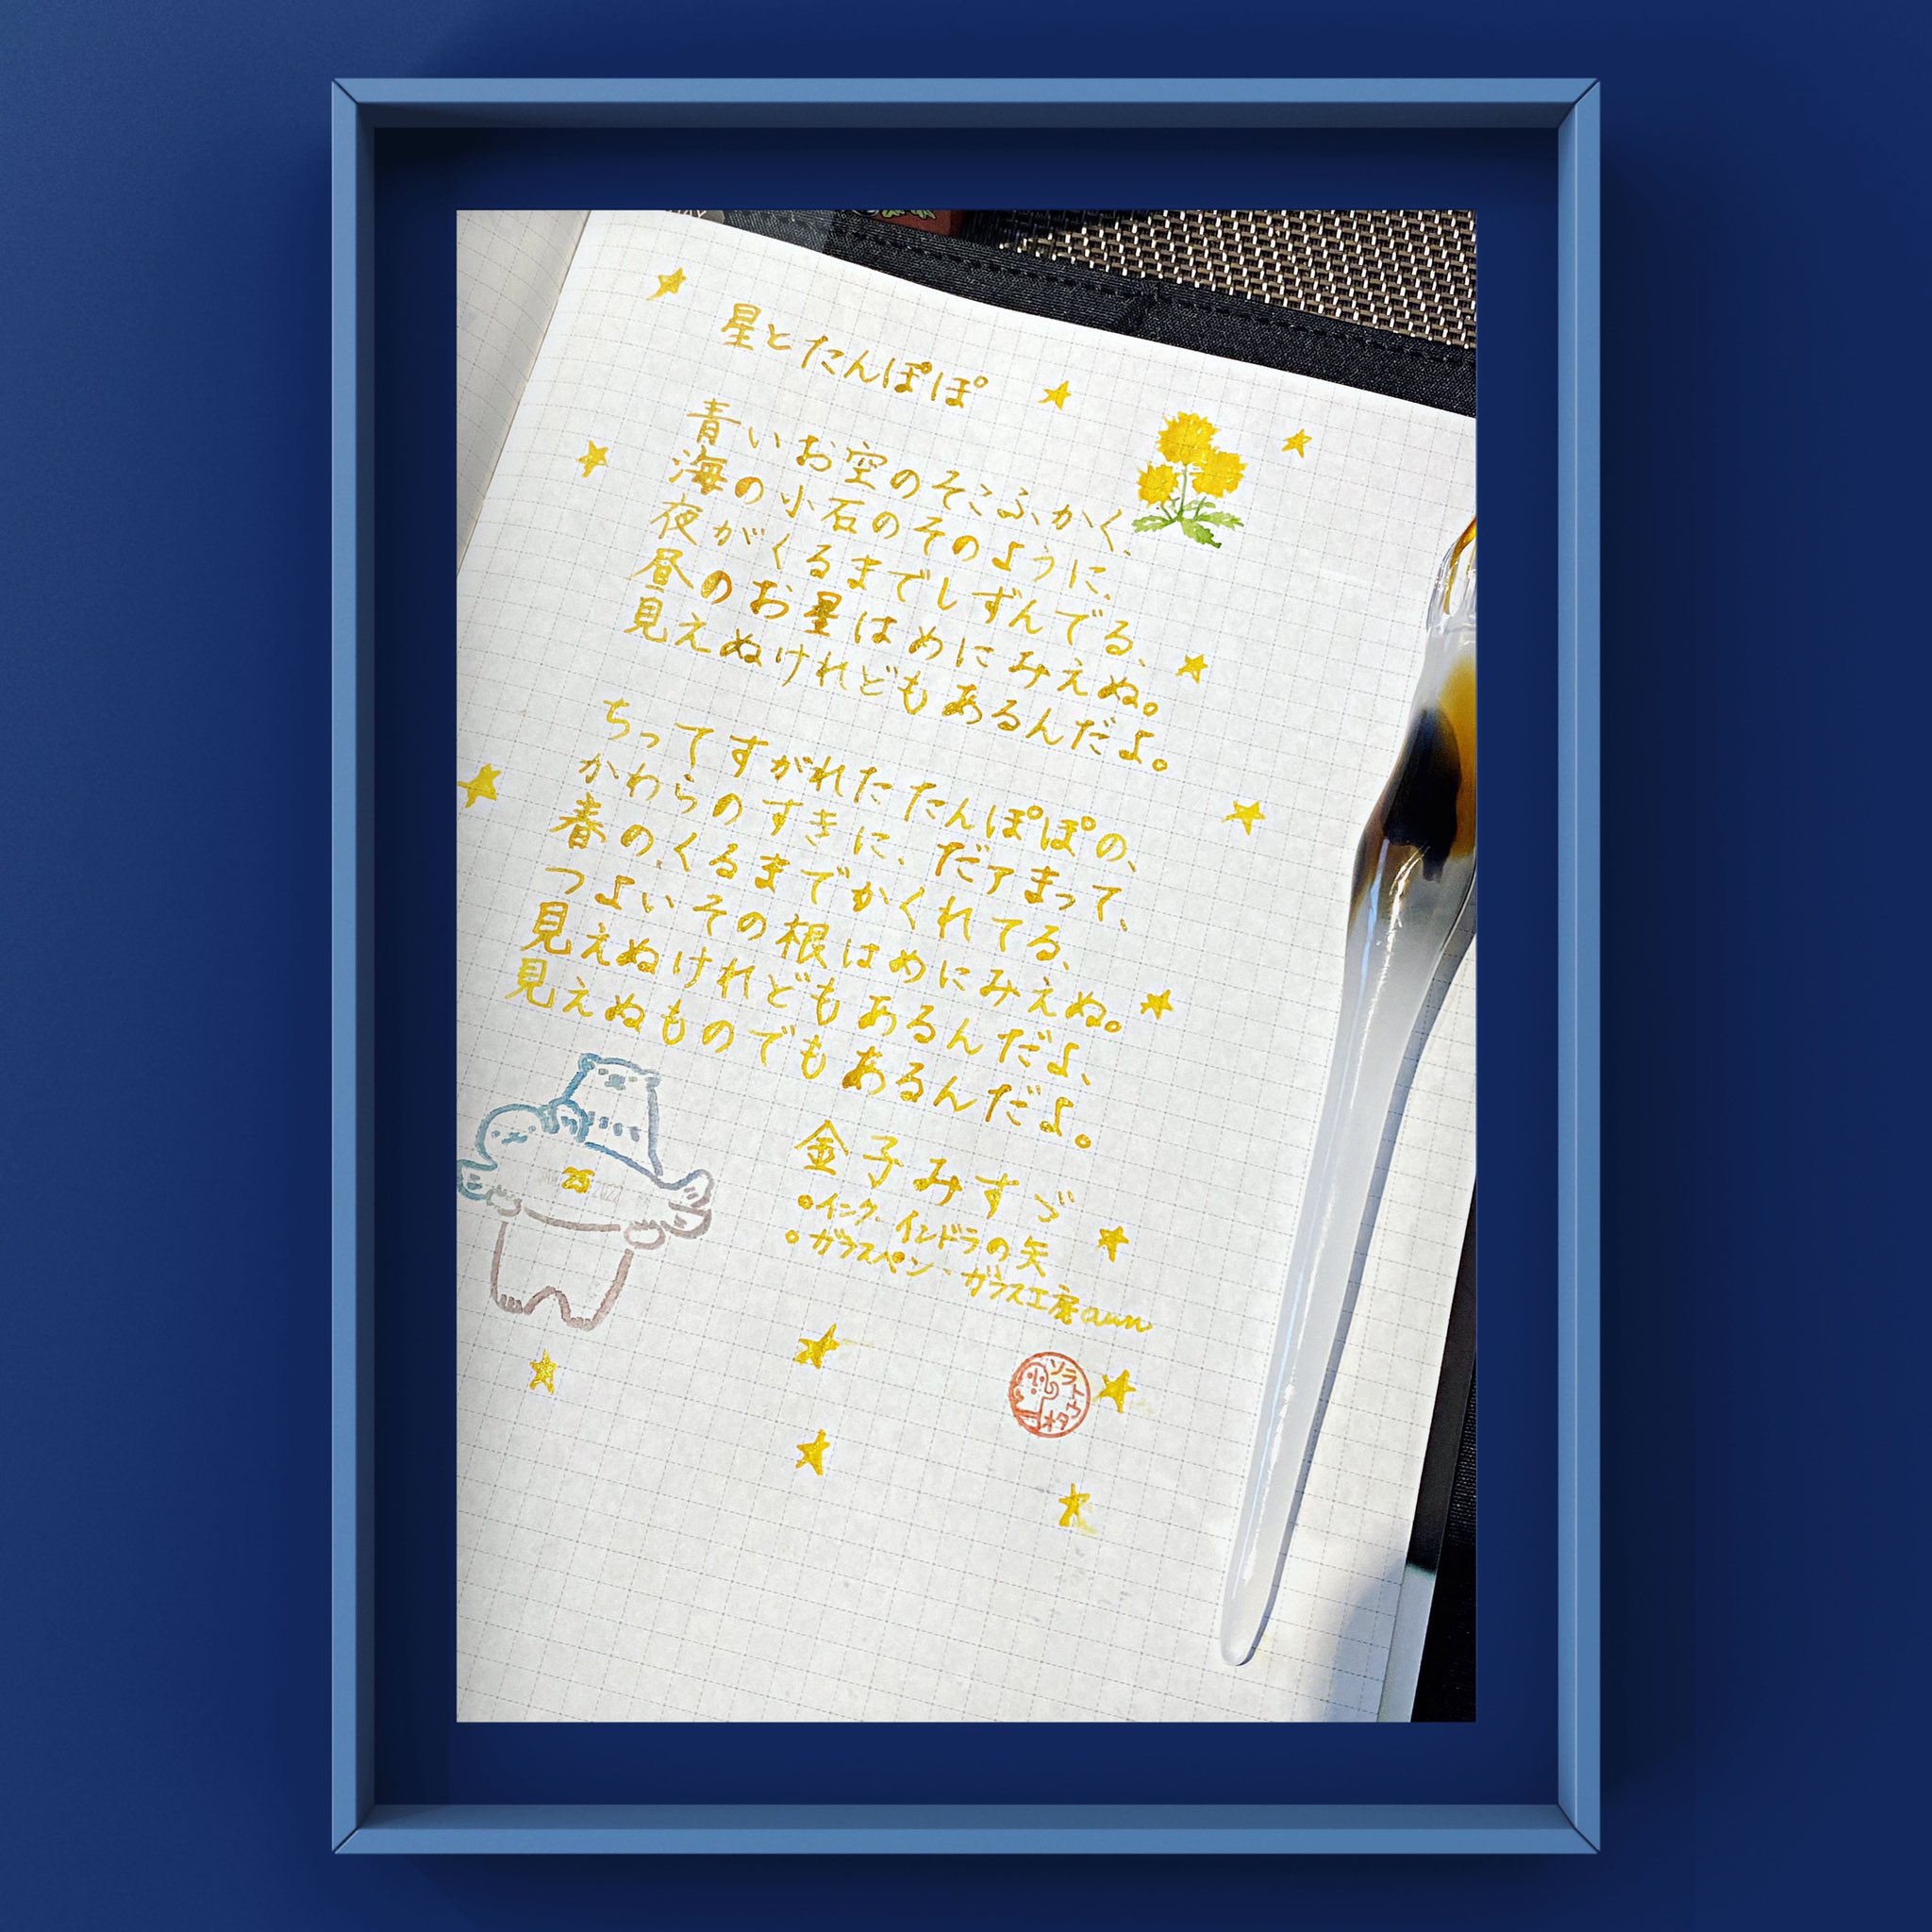 星とたんぽぽ
青いお空のそこふかく、
海の小石のそのように、
夜がくるまでしずんでる、
昼のお星はめにみえぬ。
見えぬけれどもあるんだよ。
ちってすがれたたんぽぽの、
かわらのすきに、だァまって、
春のくるまでかくれてる、
つよいその根はめにみえぬ。
見えぬけれどもあるんだよ、
見えぬものでもあるんだよ。
金子みすゞ
•インク・インドラの矢
•ガラスペン・ガラス工房aun
25